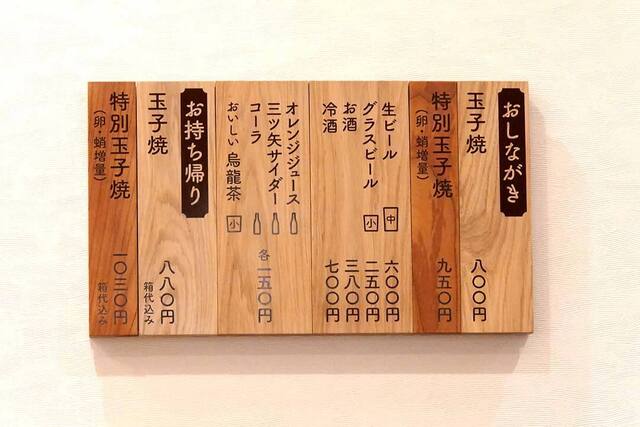 おしながき
玉子焼 八〇〇円
特別玉子焼 九五〇円
（卵・蛸増量）
生ビール 中 六〇〇円
グラスビール 小 二五〇円
お酒 三八〇円
冷酒 七〇〇円
オレンジジュース
三ツ矢サイダー
コーラ
おいしい烏龍茶 小
各一五〇円
お持ち帰り
玉子焼 八八〇円
箱代込み
特別玉子焼 一〇三〇円
（卵・蛸増量） 箱代込み